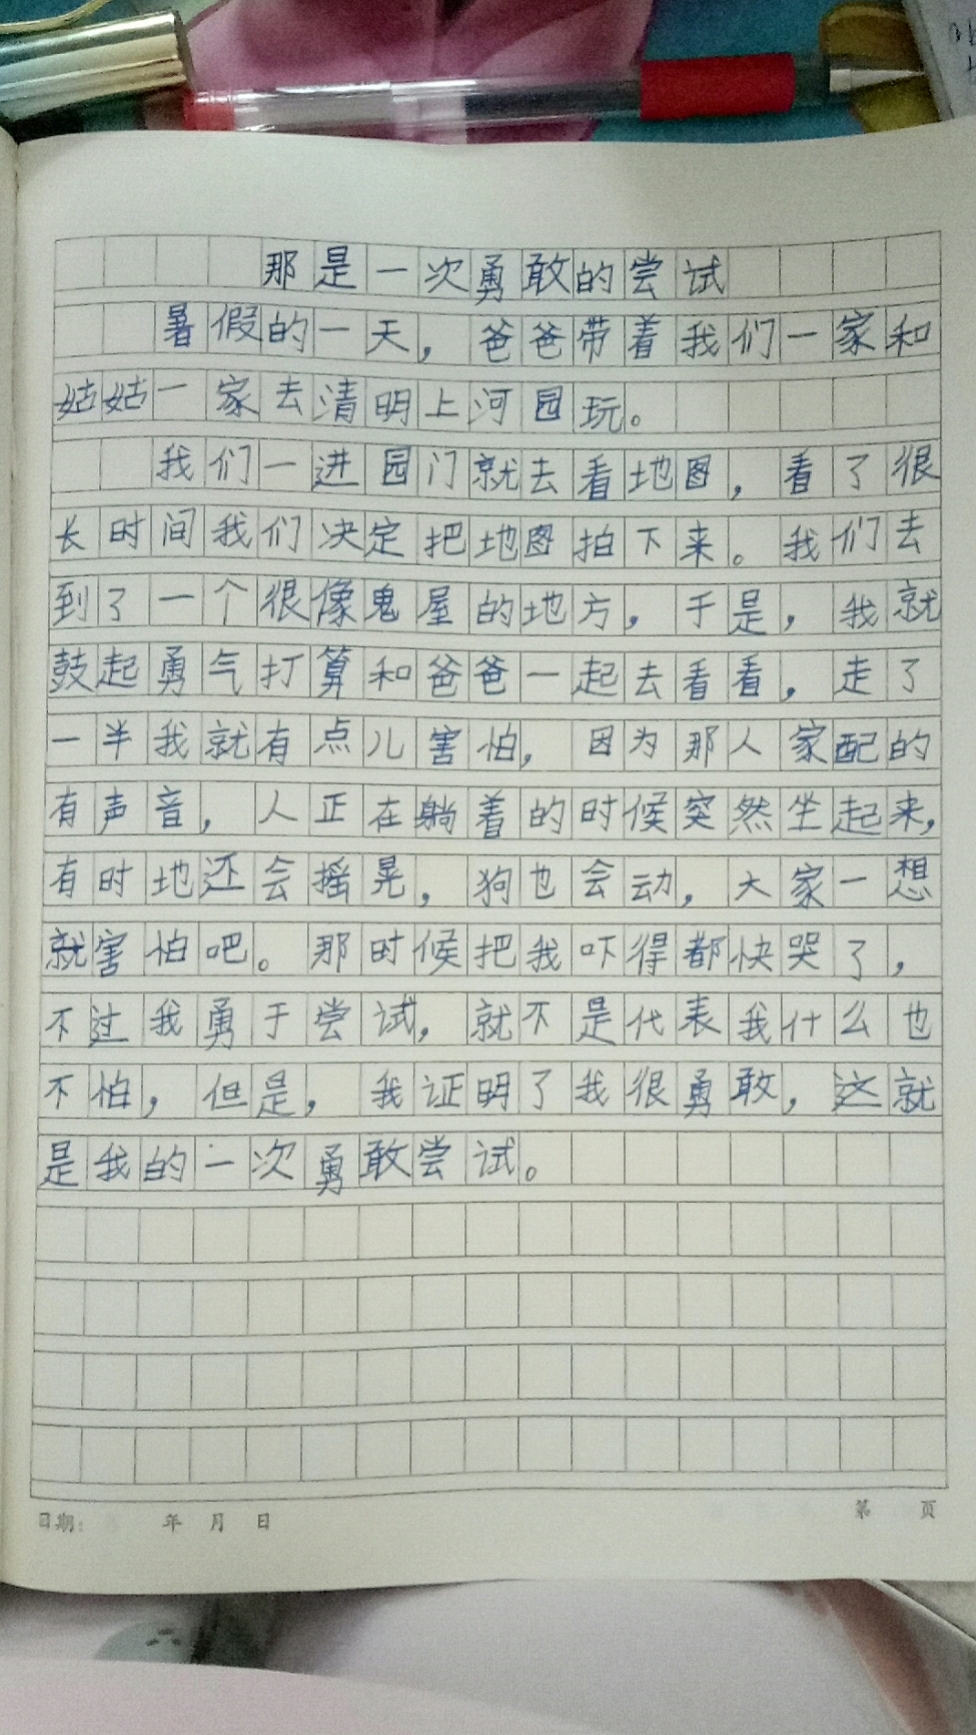 那是一次勇敢的尝试
暑假的一天，爸爸带着我们一家和
姑姑一家去清明上河园玩。
我们一进园门就去看地图，看了很
长时间我们决定把地图拍下来。我们去
到了一个很像鬼屋的地方，于是，我就
鼓起勇气打算和爸爸一起去看看，走了
一半我就有点儿害怕，因为那人家配的
有声音，人正在躺着的时候突然坐起来，
有时地还会摇晃，狗也会动，大家一想
就害怕吧。那时候把我吓得都快哭了，
不过我勇于尝试，就不是代表我什么也
不怕，但是，我证明了我很勇敢，这就
是我的一次勇敢尝试。
日期： 年 月 日 第 页